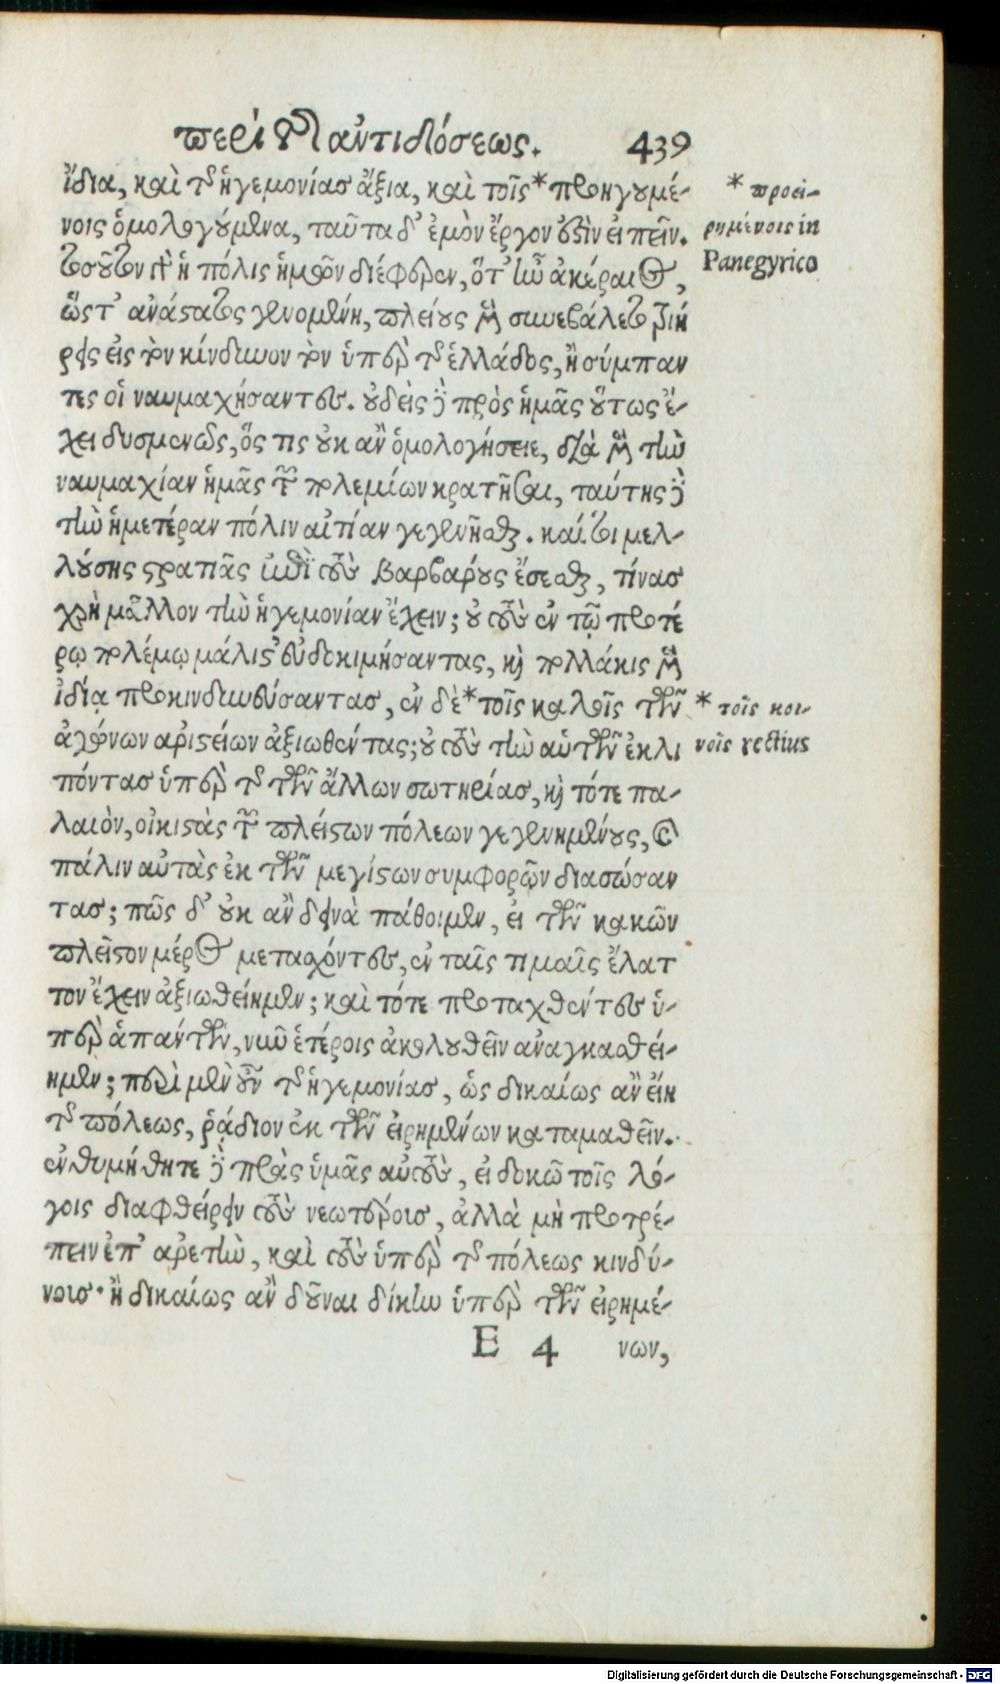 περὶ τῆς ἀντιδόσεως. 439
ἴδια, καὶ τῆς ἡγεμονίας ἄξια, καὶ τοῖς * προηγουμέ-
νοις ὁμολογούμενα, ταῦτα δ' ἐμὸν ἔργον ὅβὶν εἰπεῖν.
τοσοῦτον δὲ ἡ πόλις ἡμῶν διέφερεν, ὅτ' ἦν ἀκέραιος,
ὥστ' ἀνάστατος γενομένη, πλείους μὲν συνεβάλετο τριή
ρεις εἰς τὸν κίνδυνον τὸν ὑπὲρ τῆς ἑλλάδος, ἢ σύμπαν
τες οἱ ναυμαχήσαντες. οὐδεὶς δὲ πρὸς ἡμᾶς οὕτως ἔ-
χει δυσμενῶς, ὅς τις οὐκ ἂν ὁμολογήσειε, διὰ μὲν τὴν
ναυμαχίαν ἡμᾶς τῶν πολεμίων κρατῆσαι, ταύτης δὲ
τὴν ἡμετέραν πόλιν αἰτίαν γεγενῆσθαι. καί τοι μελ-
λούσης στρατιᾶς ἐπὶ τοὺς βαρβάρους ἔσεσθαι, τίνας
χρὴ μᾶλλον τὴν ἡγεμονίαν ἔχειν; οὐ τοὺς ἐν τῷ προτέ
ρῳ πολέμῳ μάλιστ' εὐδοκιμήσαντας, καὶ πολλάκις μὲν
ἰδίᾳ προκινδυνεύσαντας, ἐν δὲ * τοῖς καλοῖς τῶν
ἀγώνων ἀριστείων ἀξιωθέντας; οὐ τοὺς τὴν αὑτῶν ἐκλι
πόντας ὑπὲρ τῆς τῶν ἄλλων σωτηρίας, καὶ τότε πα-
λαιὸν, οἰκιστὰς τῶν πλείστων πόλεων γεγενημένους, καὶ
πάλιν αὐτὰς ἐκ τῶν μεγίστων συμφορῶν διασώσαν
τας; πῶς δ' οὐκ ἂν δεινὰ πάθοιμεν, εἰ τῶν κακῶν
πλεῖστον μέρος μετασχόντες, ἐν ταῖς τιμαῖς ἔλατ
τον ἔχειν ἀξιωθείημεν; καὶ τότε προταχθέντες ὑ-
πὲρ ἁπάντων, νῦν ἑτέροις ἀκολουθεῖν ἀναγκασθεί-
ημεν; περὶ μὲν οὖν τῆς ἡγεμονίας, ὡς δικαίως ἂν εἴη
τῆς πόλεως, ῥᾴδιον ἐκ τῶν εἰρημένων καταμαθεῖν.
ἐνθυμήθητε δὲ πρὸς ὑμᾶς αὐτοὺς, εἰ δοκῶ τοῖς λό-
γοις διαφθείρειν τοὺς νεωτέροις, ἀλλὰ μὴ προτρέ-
πειν ἐπ' ἀρετὴν, καὶ τοὺς ὑπὲρ τῆς πόλεως κινδύ-
νοις· ἢ δικαίως ἂν δοῦναι δίκην ὑπὲρ τῶν εἰρημέ-
E 4 νων,
* προει-
ρημένοις in
Panegyrico
* τοῖς κοι-
νοῖς rectius
Digitalisierung gefördert durch die Deutsche Forschungsgemeinschaft - DFG